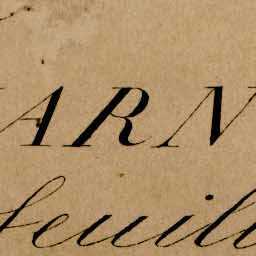 ARN
feuill